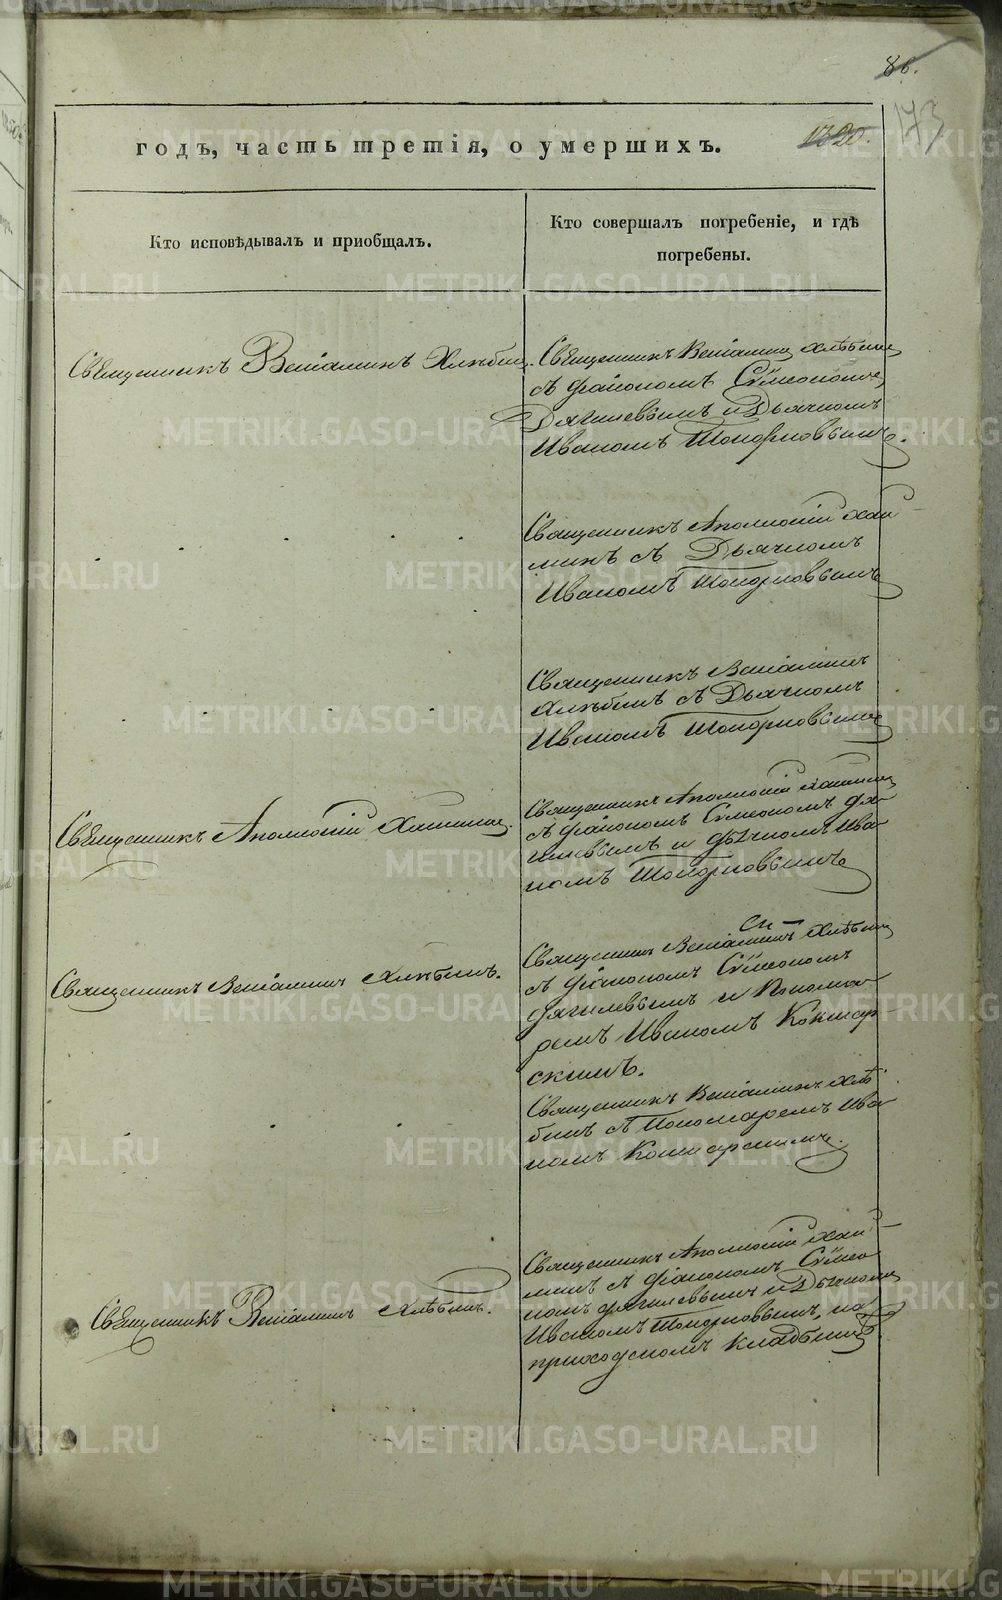 86.
173
1320.
годъ, часть третія, о умершихъ.
Кто исповѣдывалъ и пріобщалъ.
Кто совершалъ погребеніе, и гдѣ
погребены.
Священникъ Веніаминъ Хлѣбинъ.
Священникъ Веніаминъ Хлѣбинъ
съ Діакономъ Сѵмеономъ
Дягилевымъ и Дьячкомъ
Иваномъ Топорковымъ.
Священникъ Аполлоній Хани-
минъ съ Дьячкомъ
Иваномъ Топорковымъ
Священникъ Веніаминъ
Хлѣбинъ съ Дьячкомъ
Иваномъ Топорковымъ
Священникъ Аполлоній
Священникъ Аполлоній
съ Діакономъ Сѵмеономъ Дя-
гилевымъ и Дьячкомъ Ива-
номъ Топорковымъ
Священникъ Веніаминъ Хлѣбинъ.
Священникъ Веніаминъ Хлѣбинъ
съ Діакономъ Сѵмеономъ
Дягилевымъ и Пономаремъ
Иваномъ Кокшар-
скимъ.
Священникъ Веніаминъ Хлѣ-
бинъ съ Пономаремъ Ива-
номъ Кокшарскимъ.
Священникъ Веніаминъ Хлѣбинъ.
Священникъ Аполлоній
съ Діакономъ Сѵмео-
номъ Дягилевымъ и Дьячкомъ
Иваномъ Топорковымъ, на
приходскомъ кладбищѣ
METRIKI.GASO-URAL.RU